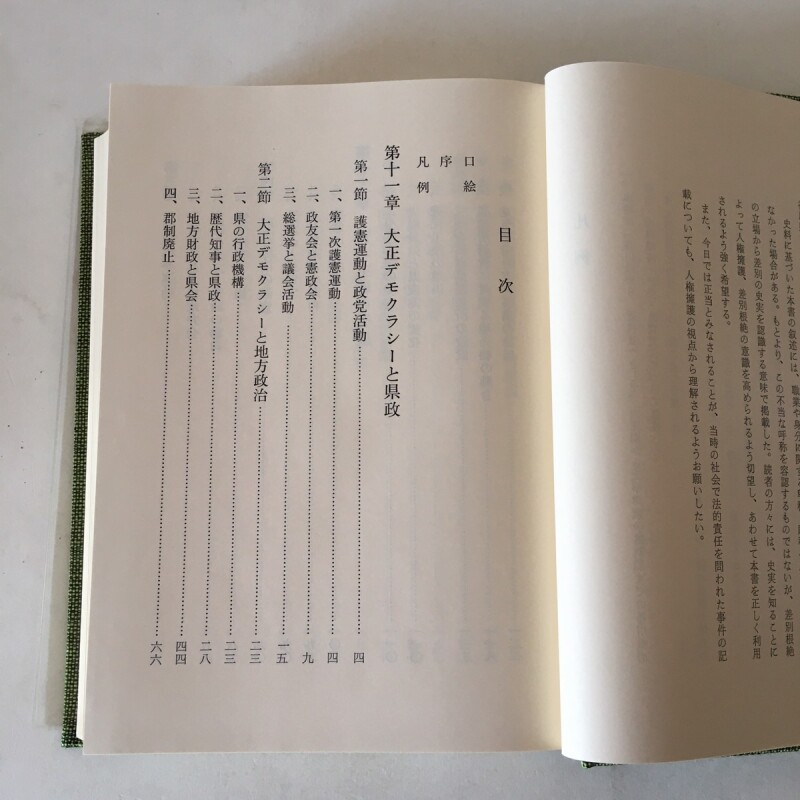 史料に基づいた本書の叙述には、職業や身分に関
なかった場合がある。もとより、この不当な呼称を容認するものではないが、差別根絶
の立場から差別の史実を認識する意味で掲載した。読者の方々には、史実を知ることに
よって人権擁護、差別根絶の意識を高められるよう切望し、あわせて本書を正しく利用
されるよう強く希望する。
また、今日では正当とみなされることが、当時の社会で法的責任を問われた事件の記
載についても、人権擁護の視点から理解されるようお願いしたい。
目次
口絵
序
凡例
第十一章 大正デモクラシーと県政
第一節 護憲運動と政党活動……四
一、第一次護憲運動……四
二、政友会と憲政会……九
三、総選挙と議会活動……一五
第二節 大正デモクラシーと地方政治……二三
一、県の行政機構……二三
二、歴代知事と県政……二八
三、地方財政と県会……四四
四、郡制廃止……六六